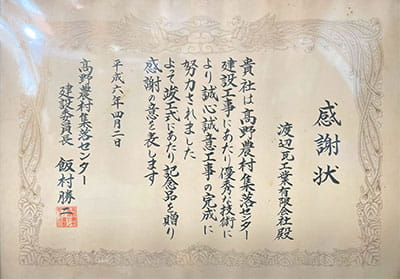 感謝状
渡辺瓦工業有限会社殿
貴社は高野農村集落センター
建設工事にあたり優秀な技術に
より誠心誠意工事の完成に
努力されました
よって竣工式にあたり記念品を贈り
感謝の意を表します
平成六年四月二日
高野農村集落センター
建設委員長 飯村勝二